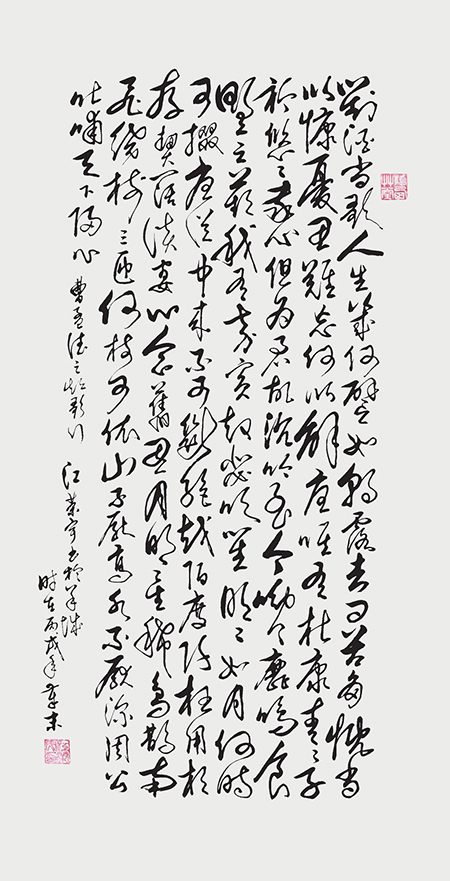 對酒当歌人生幾何譬如朝露去日苦多慨当
以慷憂思難忘何以解憂唯有杜康青青子
衿悠悠我心但为君故沉吟至今呦呦鹿鳴食
野之苹我有嘉賓鼓瑟吹笙明明如月何時
可掇憂從中来不可斷絶越陌度阡枉用相
存契闊談宴心念舊恩月明星稀烏鵲南
飛繞树三匝何枝可依山不厭高水不厭深周公
吐哺天下歸心 曹孟德之短歌行 江書於羊城
时在丙戌年春末